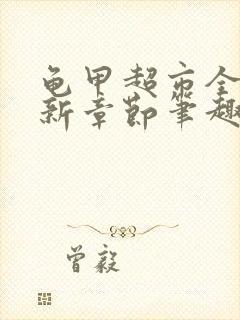 龟甲超市全
新章节笔趣
曾毅